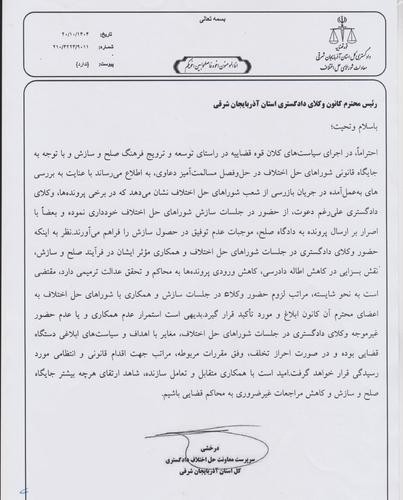 بسمه تعالی
تاریخ: ۱۴۰۴/۱۰/۲۰
شماره: ۲۱۰/۳۲۲۳/۹۰۱۱
پیوست: (ندارد)
دادگستری کل استان آذربایجان شرقی
معاونت شورای حل اختلاف
انما المومنون اخوه فاصلحوا بین اخویکم
رئیس محترم کانون وکلای دادگستری استان آذربایجان شرقی
باسلام وتحیت؛
احتراماً، در اجرای سیاست‌های کلان قوه قضاییه در راستای توسعه و ترویج فرهنگ صلح و سازش و با توجه به
جایگاه قانونی شوراهای حل اختلاف در حل‌وفصل مسالمت‌آمیز دعاوی، به اطلاع می‌رساند با عنایت به بررسی
های به‌عمل‌آمده در جریان بازرسی از شعب شوراهای حل اختلاف نشان می‌دهد که در برخی پرونده‌ها، وکلای
دادگستری علی‌رغم دعوت، از حضور در جلسات سازش شوراهای حل اختلاف خودداری نموده و بعضاً با
اصرار بر ارسال پرونده به دادگاه صلح، موجبات عدم توفیق در حصول سازش را فراهم می‌آورند.نظر به اینکه
حضور وکلای دادگستری در جلسات شوراهای حل اختلاف و همکاری مؤثر ایشان در فرآیند صلح و سازش،
نقش بسزایی در کاهش اطاله دادرسی، کاهش ورودی پرونده‌ها به محاکم و تحقق عدالت ترمیمی دارد، مقتضی
است به نحو شایسته، مراتب لزوم حضور وکلاء در جلسات سازش و همکاری با شوراهای حل اختلاف به
اعضای محترم آن کانون ابلاغ و مورد تأکید قرار گیرد.بدیهی است استمرار عدم همکاری و یا عدم حضور
غیرموجه وکلای دادگستری در جلسات شوراهای حل اختلاف، مغایر با اهداف و سیاست‌های ابلاغی دستگاه
قضایی بوده و در صورت احراز تخلف، وفق مقررات مربوطه، مراتب جهت اقدام قانونی و انتظامی مورد
رسیدگی قرار خواهد گرفت.امید است با همکاری متقابل و تعامل سازنده، شاهد ارتقای هرچه بیشتر جایگاه
صلح و سازش و کاهش مراجعات غیرضروری به محاکم قضایی باشیم.
درخشی
سرپرست معاونت حل اختلاف دادگستری
کل استان آذربایجان شرقی